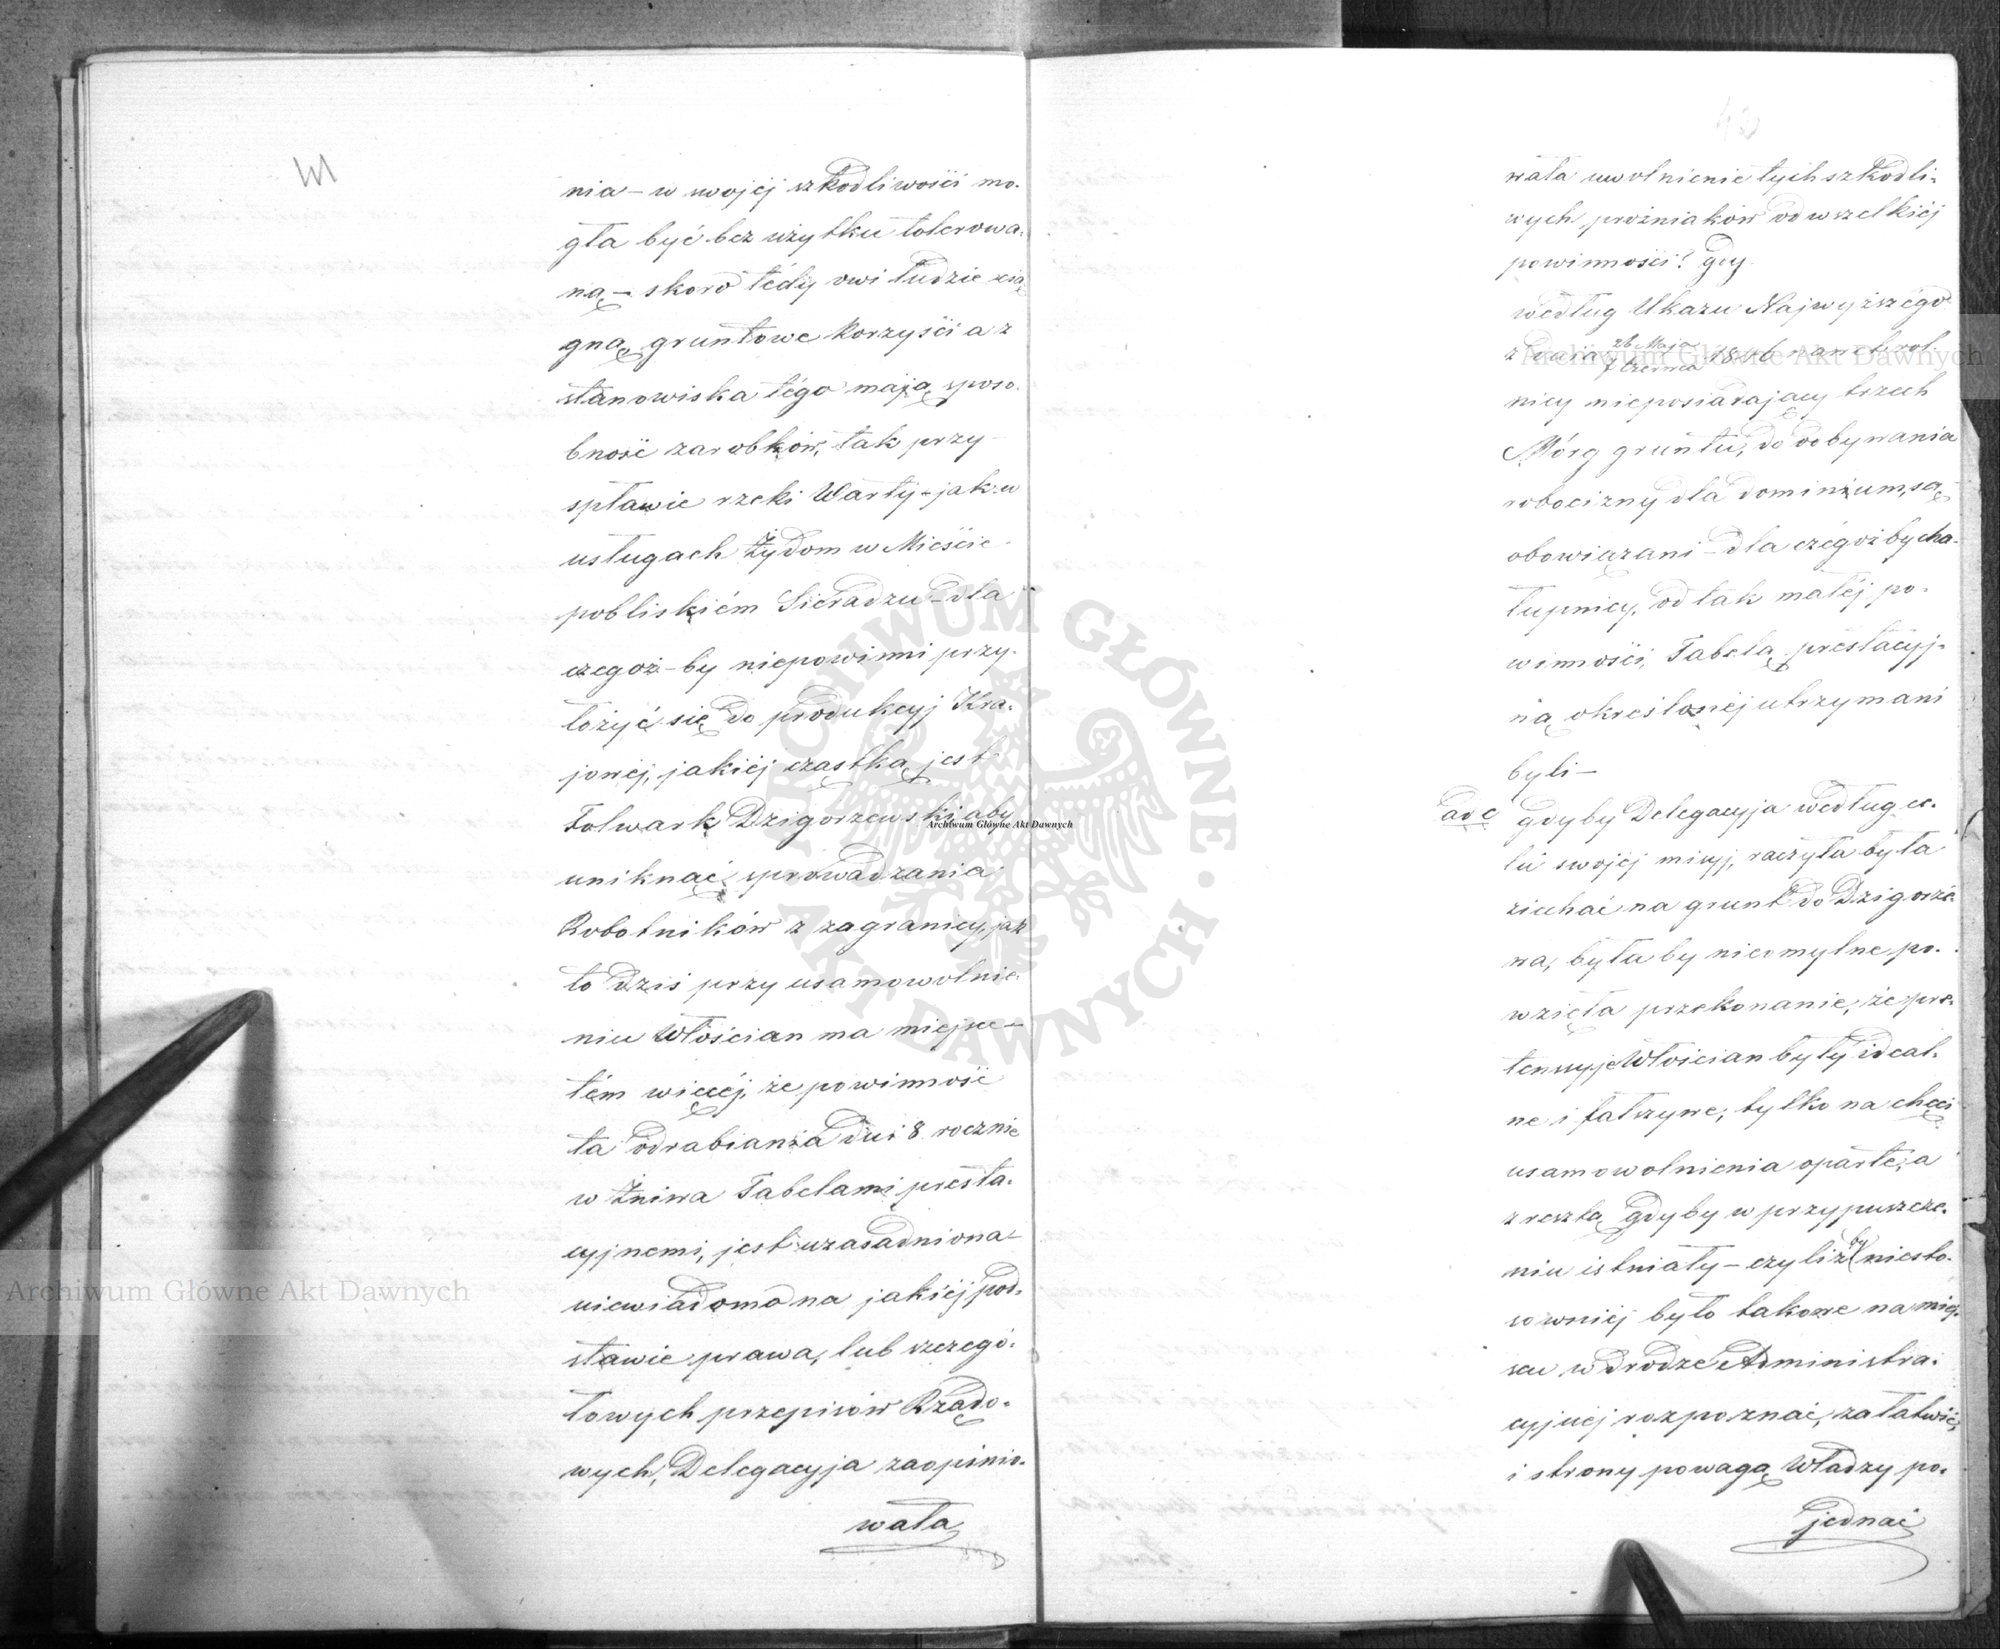 nia – w swojej szkodliwości mo-
gła być bez użytku tolerowa-
ną – skoro tedy owi ludzie cią
gną gruntowe korzyści a z
stanowiska tégo mają sposo-
bność zarobków, tak przy
spławie rzeki Warty – jak w
usługach Żydom w Mieście
pobliskiém Sieradzu – dla
czegoż-by niepowinni przy-
łożyć się do produkcyj Kra-
jowéj, jakiéj cząstką jest
Folwark Dzigorzewski, aby
uniknąć sprowadzania
Robotników z zagranicy, jak
to dziś przy usamowolnie-
niu Włościan ma miejsce –
tém więcéj, że powinność
ta odrabiania dni 8 rocznie
w żniwa Tabelami presta-
cyjnemi, jest uzasadniona
niewiadomo na jakiéj pod-
stawie prawa, lub szczegó-
łowych przepisów Rządo-
wych, Delegacyja zaopinio-
wała
wała uwolnienie tych szkodli-
wych próżniaków od wszelkiéj
powinności? gdy
według Ukazu Najwyższégo
z dnia 26 Maja / 7 Czerwca 1846 nawet rol-
nicy nieposiadający trzech
Mórg gruntu, do odbywania
robocizny dla dominium, są
obowiązani – dla czégożby cha-
łupnicy, od tak małéj po-
winności, Tabelą prestacyj-
ną określonéj utrzymani
byli –
ad c gdyby Delegacyja według ce-
lu swojéj misyj, raczyła była
ziechać na grunt do Dzigorze-
wa, byłaby nieomylne po-
wzięła przekonanie, że pre-
tensyje Włościan były ideal-
ne i fałszywe, tylko na chęci
usamowolnienia oparte, a
zresztą gdyby w przypuszcze-
niu istniały – czyliż by niesto-
sowniéj było takowe na miej-
scu w drodze Administra-
cyjnéj rozpoznać, załatwić,
i strony powagą Władzy po-
jednać
Archiwum Główne Akt Dawnych
Archiwum Główne Akt Dawnych
Archiwum Główne Akt Dawnych
ARCHIWUM GŁÓWNE • AKT DAWNYCH •